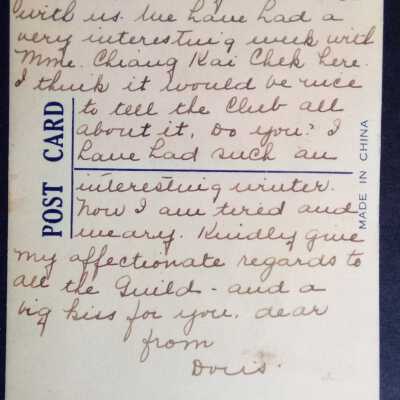 with us. We have had a
very interesting week with
Mme. Chiang Kai Chek here.
I think it would be nice
to tell the Club all
about it, Do you? I
have had such an
interesting winter.
Now I am tired and
weary. Kindly give
my affectionate regards to
all the Guild - and a
big kiss for you, dear
from
Doris.
POST CARD
MADE IN CHINA